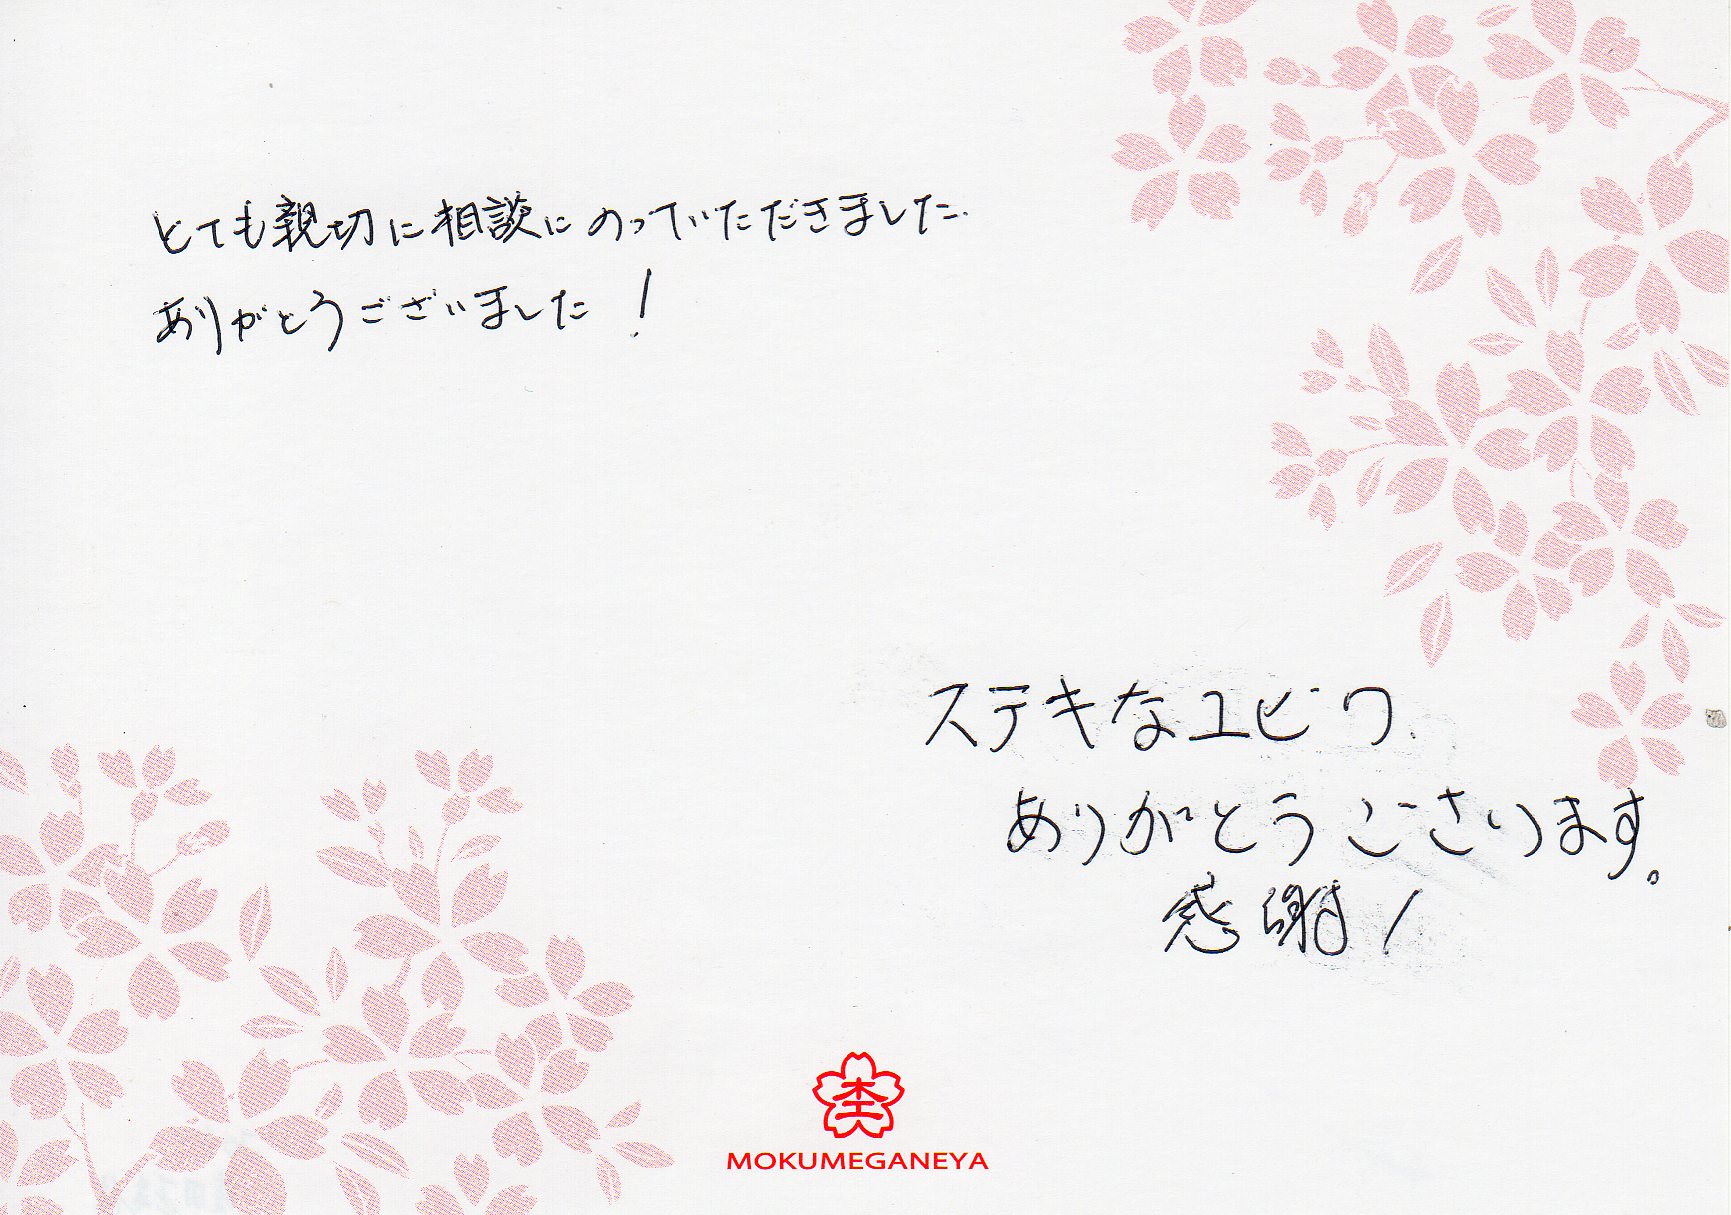 とても親切に相談にのっていただきました.
ありがとうございました!
ステキなユビワ
ありがとうございます。
感謝!
MOKUMEGANEYA